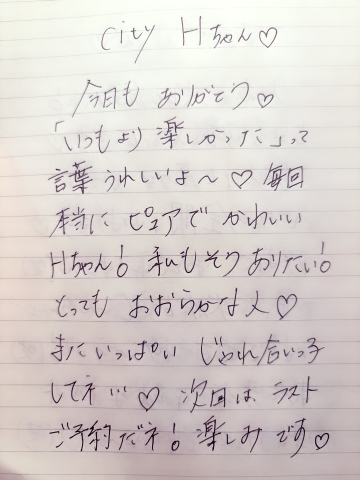 city Hちゃん♡
今日も ありがとう♡
「いつもより 楽しかった」って
言葉 うれしいよ〜♡ 毎回
本当に ピュアで かわいい
Hちゃん! 私もそう ありたい!
とっても おおらかな人♡
またいっぱい じゃれ合いっ子
してネ…♡ 次回は ラスト
ご予約だネ! 楽しみです♡